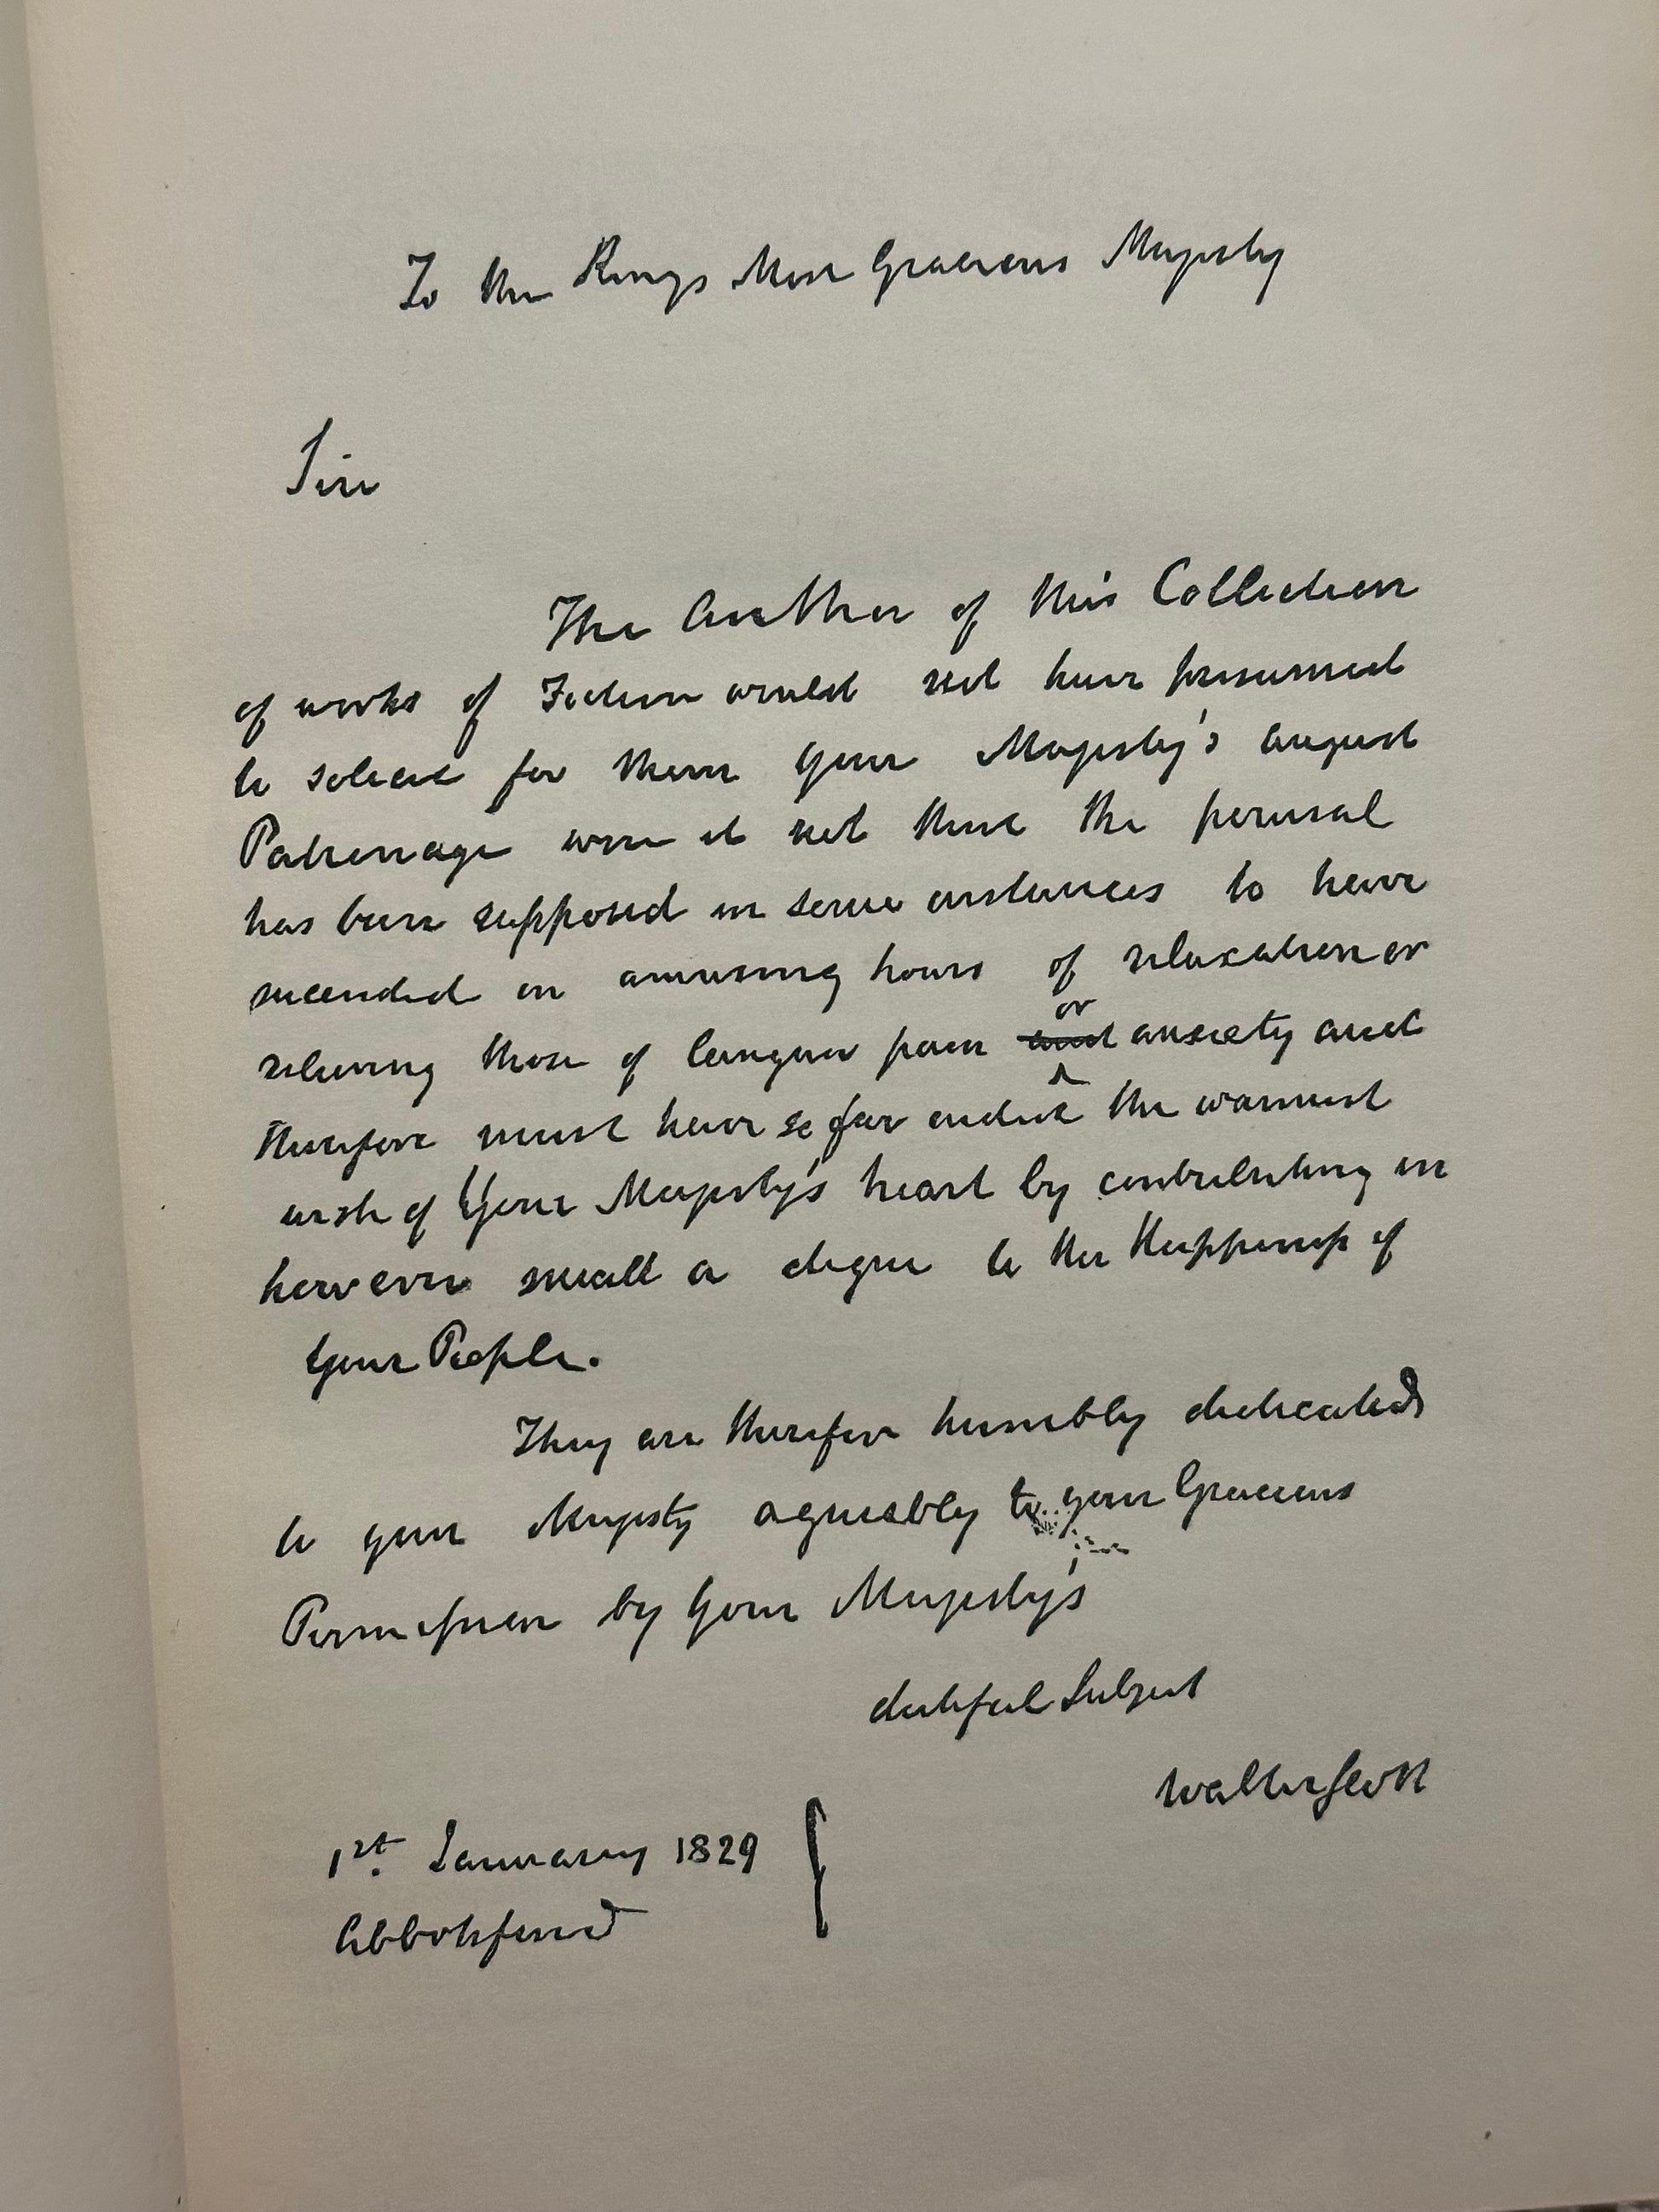 To the Kings Most Gracious Majesty
Sire
The Author of this Collection
of works of Fiction would not have presumed
to solicit for them your Majesty's august
Patronage were it not that the perusal
has been supposed in some instances to have
succeeded in amusing hours of relaxation or
relieving those of languor pain and or anxiety and
therefore must have so far aided the warmest
wish of Your Majesty's heart by contributing in
however small a degree to the Happiness of
Your People.
They are therefore humbly dedicated
to your Majesty agreeably to your Gracious
Permission by Your Majesty's
dutiful Subject
Walter Scott
1st. January 1829
Abbotsford